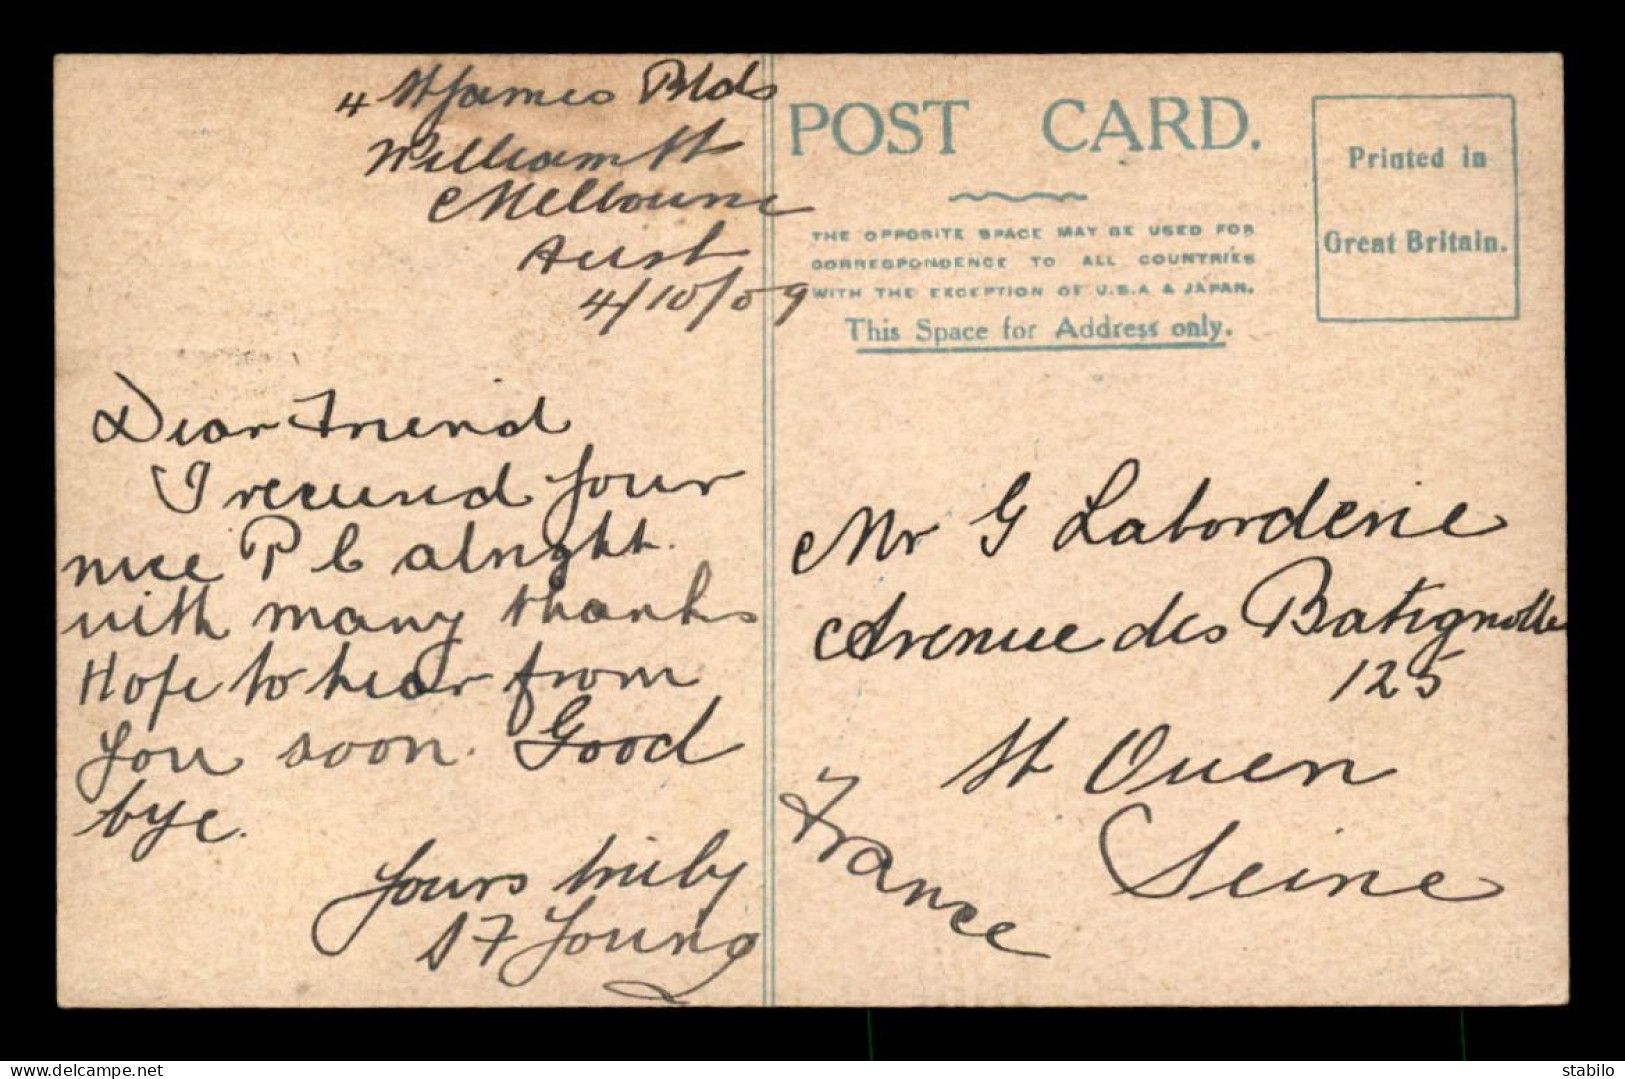 4 St James Blds
William St
Melbourne
Aust
4/10/09
Dear Friend
I received your
nice P C alright.
with many thanks
Hope to hear from
you soon. Good
bye.
Yours truly
S F Young
POST CARD.
THE OPPOSITE SPACE MAY BE USED FOR
CORRESPONDENCE TO ALL COUNTRIES
WITH THE EXCEPTION OF U.S.A & JAPAN.
This Space for Address only.
Printed in
Great Britain.
Mr G Laborderie
Avenue des Batignolles
125
St Ouen
Seine
France
delcampe.net
stabilo